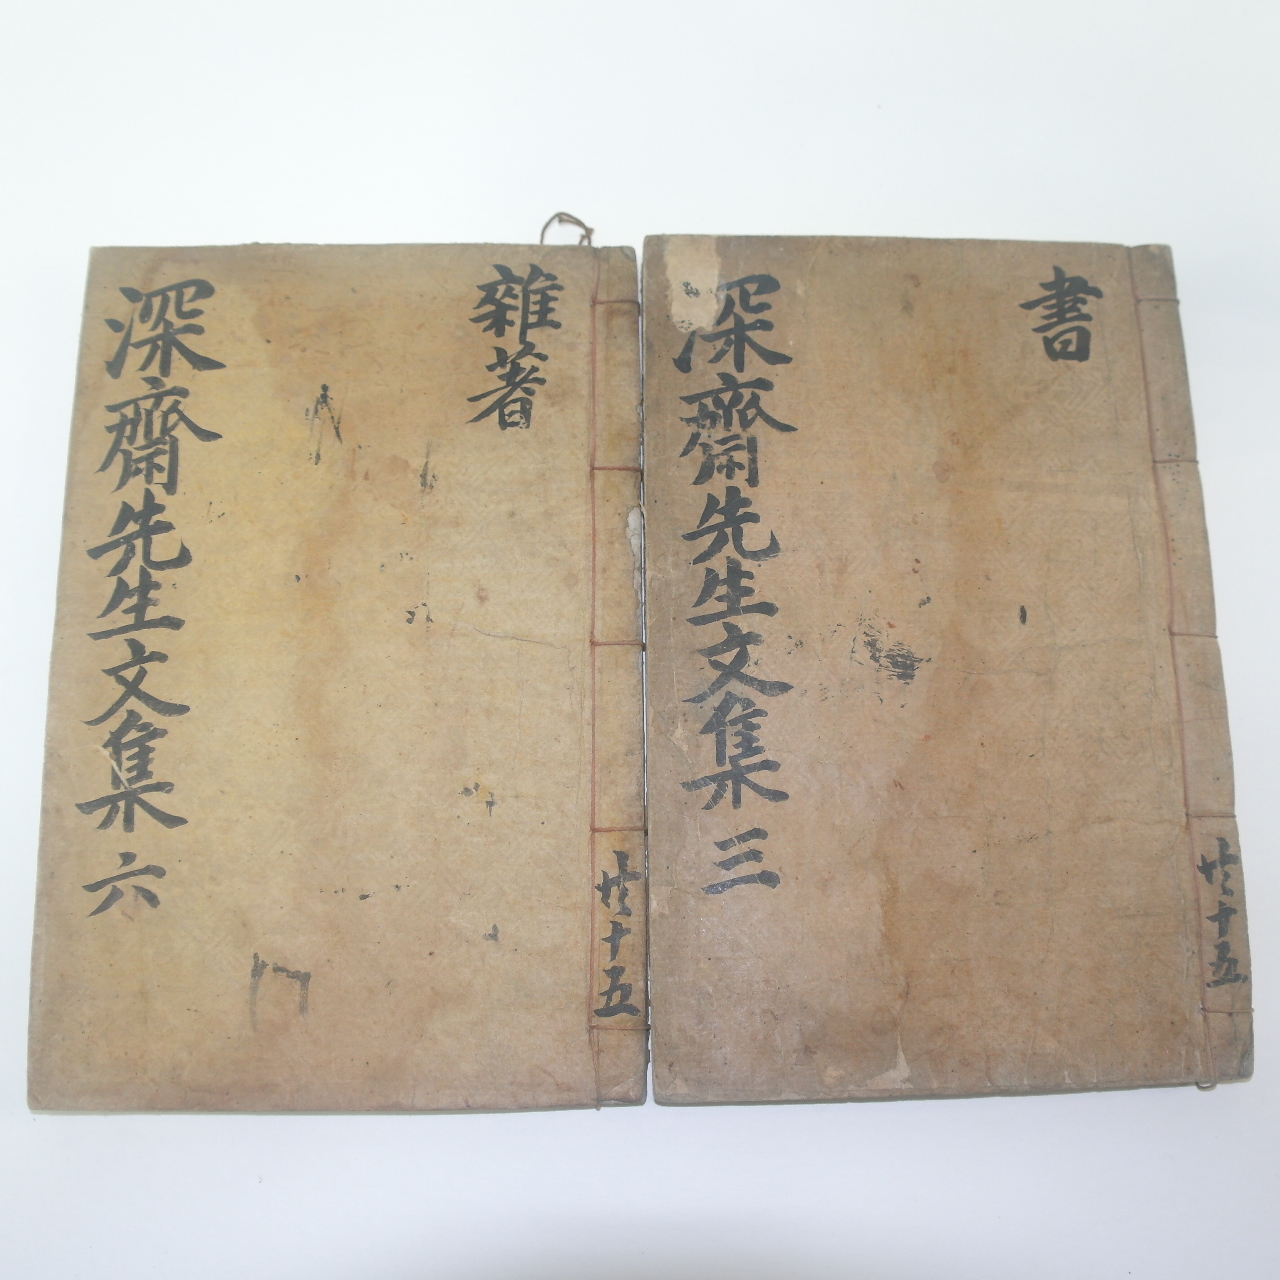 雜著
深齋先生文集 六
共十五
書
深齋先生文集 三
共十五